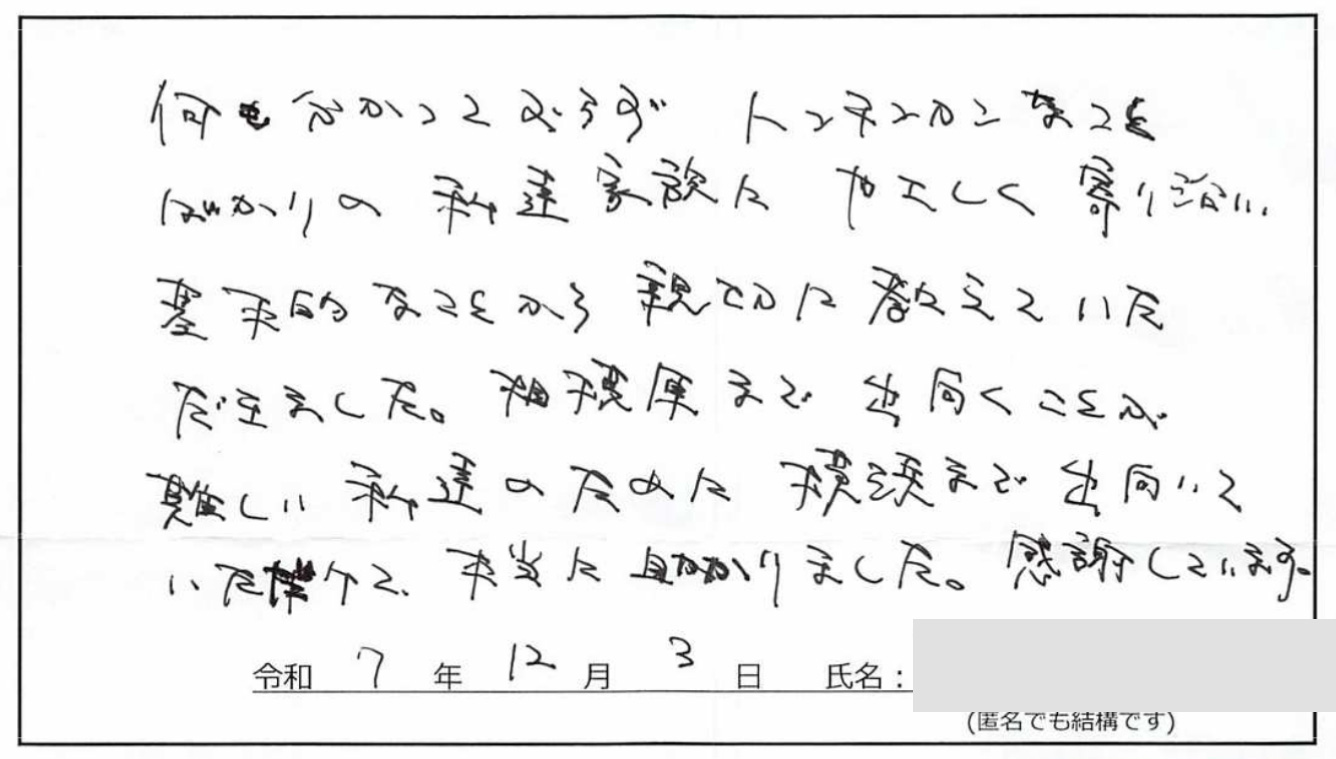 何もわかっておらず トンチンカンなこと
ばかりの 私達家族に やさしく 寄り添い、
基本的なことから 親切に 教えていた
だきました。相模原まで 出向くことが
難しい 私達のために 横浜まで 出向いて
いただけて、本当に助かりました。感謝しています。
令和 7 年 12 月 3 日 氏名：
(匿名でも結構です)